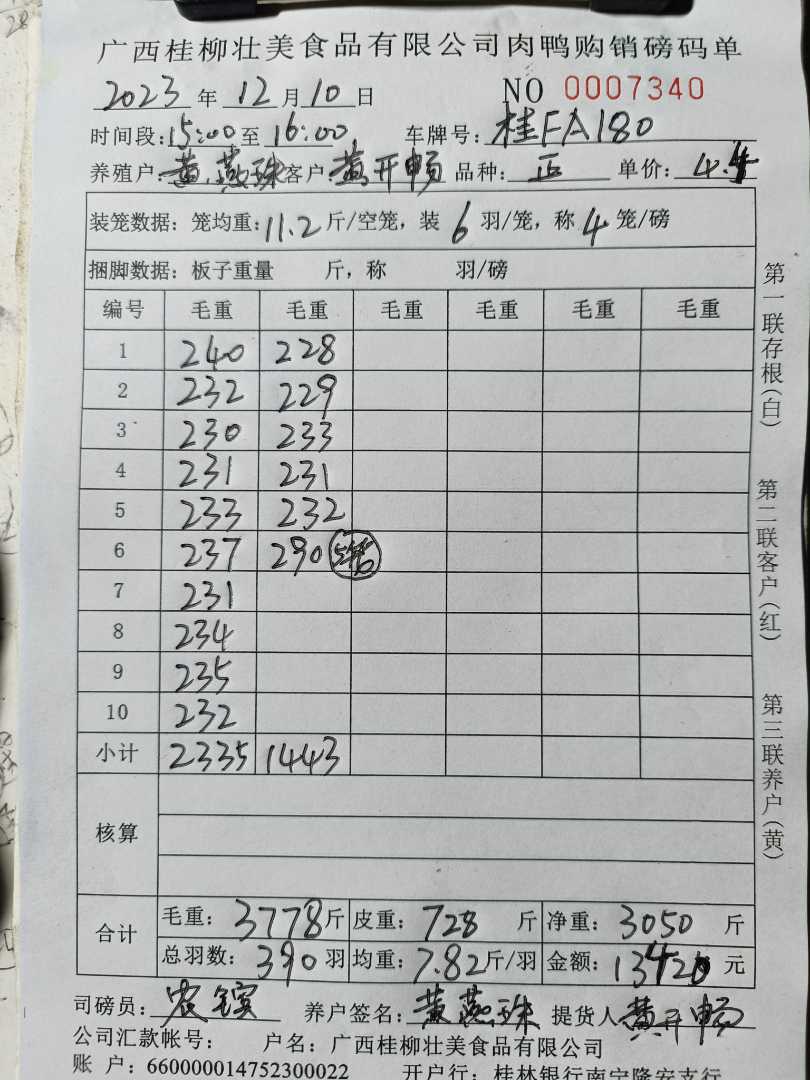 广西桂柳壮美食品有限公司肉鸭购销磅码单
2023 年 12 月 10 日 NO 0007340
时间段: 15:00 至 16:00 车牌号: 桂FA180
养殖户: 黄燕珠 客户: 黄开畅 品种: 正 单价: 4.4
装笼数据: 笼均重: 11.2 斤/空笼, 装 6 羽/笼, 称 4 笼/磅
捆脚数据: 板子重量 斤, 称 羽/磅
编号 毛重 毛重 毛重 毛重 毛重 毛重
1 240 228
2 232 229
3 230 233
4 231 231
5 233 232
6 237 290 5笼
7 231
8 234
9 235
10 232
小计 2335 1443
核算
合计 毛重: 3778 斤 皮重: 728 斤 净重: 3050 斤
总羽数: 390 羽 均重: 7.82 斤/羽 金额: 13420 元
司磅员: 农 养户签名: 黄燕珠 提货人 黄开畅
公司汇款帐号: 户名: 广西桂柳壮美食品有限公司
账 户: 660000014752300022 开户行: 桂林银行南宁隆安支行
第一联存根(白)
第二联客户(红)
第三联养户(黄)